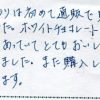 りは初めて通販で
た。ホワイトチョコレート
あっていてとてもおいし
ました。また購入し
ます。